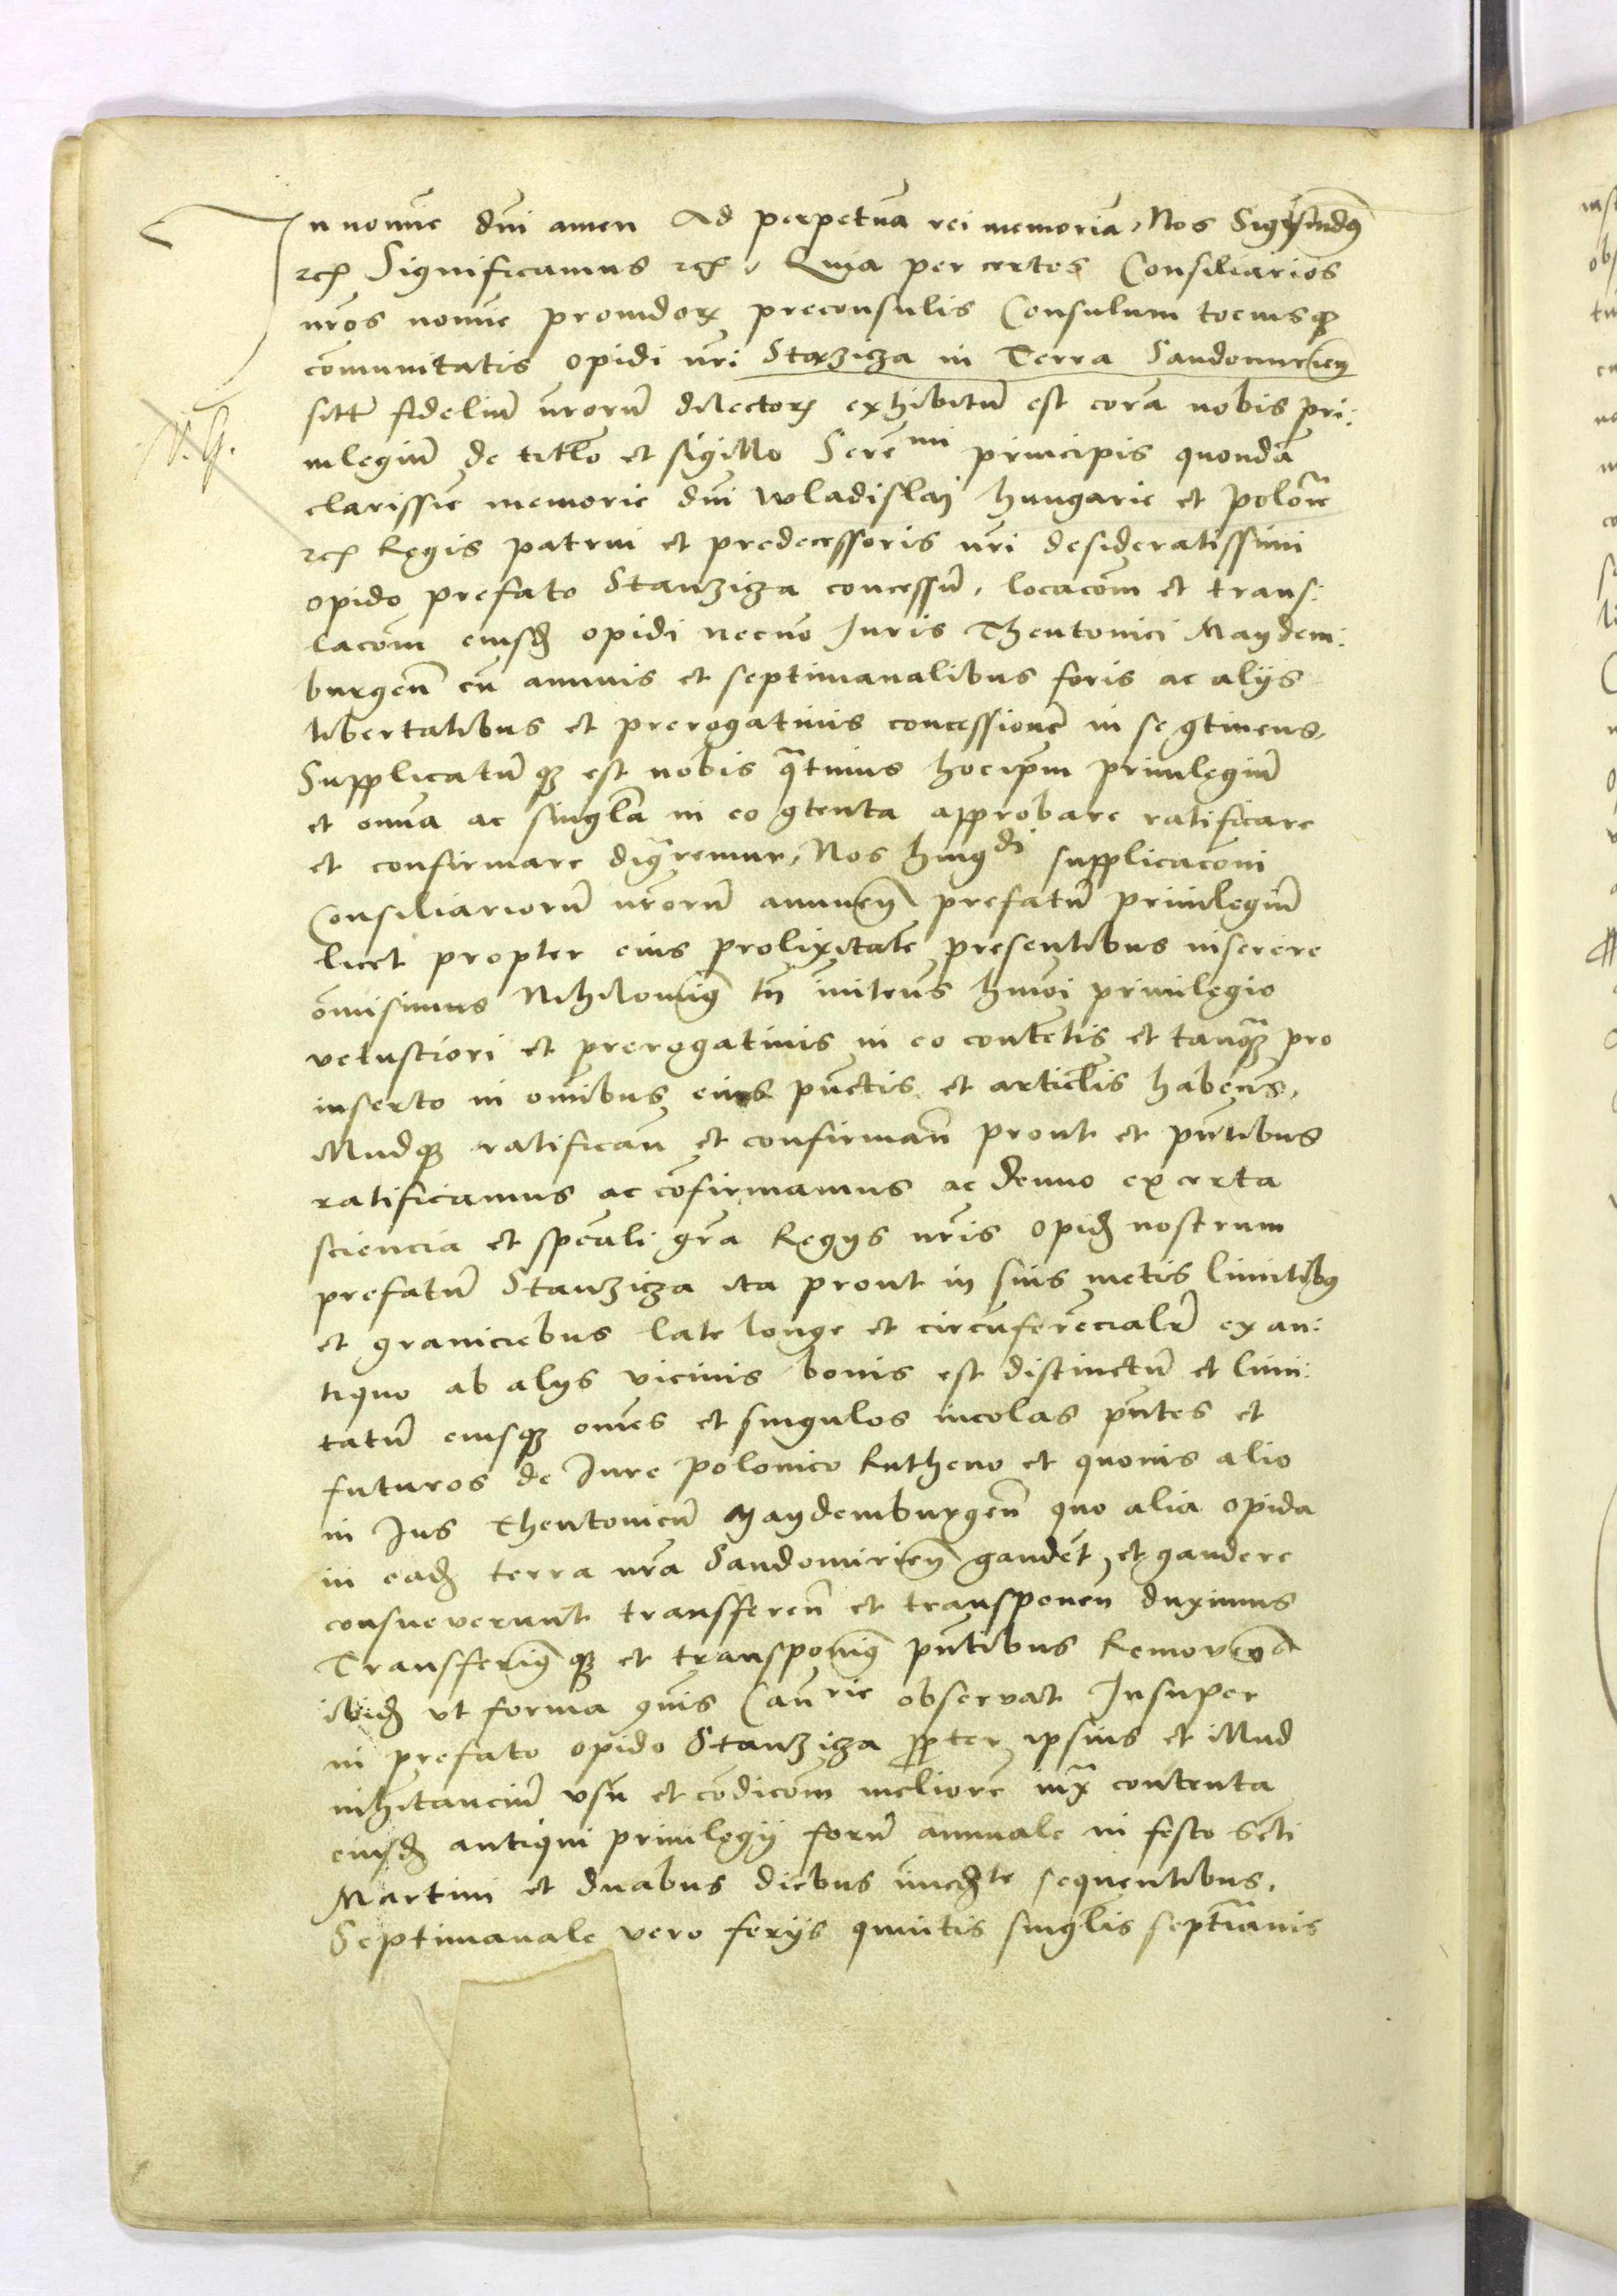 In nomīe dni amen Ad perpetuā rei memoriā, Nos Sigismūdꝯ
rcꝭ Significamus rcꝭ, Quia per certos Consiliarios
nros nomīe prouidorꝝ preconsulis Consulum tociusqꝫ
cōmunitatis opidi nri Starziza in Terra Sandomirien̄
sitī fideliū nrorū dilectorꝝ exhibitū est corā nobis pri:
uilegiū de titlo et sigillo Sereᵐⁱ principis quondā
clarissīe memorie dni wladislaj hungarie et poloīe
rcꝭ Regis patrui et predecessoris nri desideratissimi
opido prefato Stanziza concessū, locacom̄ et trans:
lacom̄ eiusdꝫ opidi necno Iuris Theutonici Maydem:
burgen̄ cū annuis et septimanalibus foris ac alijs
libertatibus et prerogatiuis concessionē in se ꝯtinens,
Supplicatū qꝫ est nobis q̄tinus hoc ipm priuilegiū
et om̄ia ac singla in eo ꝯtenta approbare ratificare
et confirmare dig̃remur, Nos huiꝯᵈⁱ supplicacōni
Consiliariorū nrorū annuen̄ prefatū priuilegiū
licet propter eius prolixitatē presentibus inserere
omisimus Nihilominꝯ tn̄ īnitens hmōi priuilegio
vetustiori et prerogatiuis in eo contētis et tanqꝫ pro
inserto in omībus eius pūctis et articlis habens,
Illudqꝫ ratifican̄ et confirman̄ prout et pn̄tibus
ratificamus ac cōfirmamus ac denuo ex certa
sciencia et spēali gr̄a Regijs nr̄is opidꝫ nostrum
prefatū Stanziza ita prout in suis metis limitibꝯ
et graniciebus late longe et circūferēcialr̄ ex an:
tiquo ab alijs vicinis bonis est distinctū et limi:
tatū eiusqꝫ om̄es et singulos incolas pn̄tes et
futuros de Iure polonico Rutheno et quouis alio
in Ius Theutonicū Maydemburgen̄ quo alia opida
in eadꝫ terra nra Sandomirien̄ gaudēt et gaudere
consueverunt transferen̄ et transponen̄ duximus
Transferimꝯ qꝫ et transponimꝯ pn̄tibus Removen̄
ibidꝫ vt forma ꝯuis Canʳⁱᵉ observat Insuper
in prefato opido Stanziza ꝓpter ipsius et illud
inhītanciū vsū et cōdicōm meliorē iux̄ contenta
eiusdꝫ antiqui priuilegij forū annuale in festo Scti
Martini et duabus diebus īmedᵗᵉ sequentibus,
Septimanale vero ferijs quintis singlis septīanis